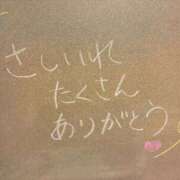 さしいれ
たくさん
ありがとう